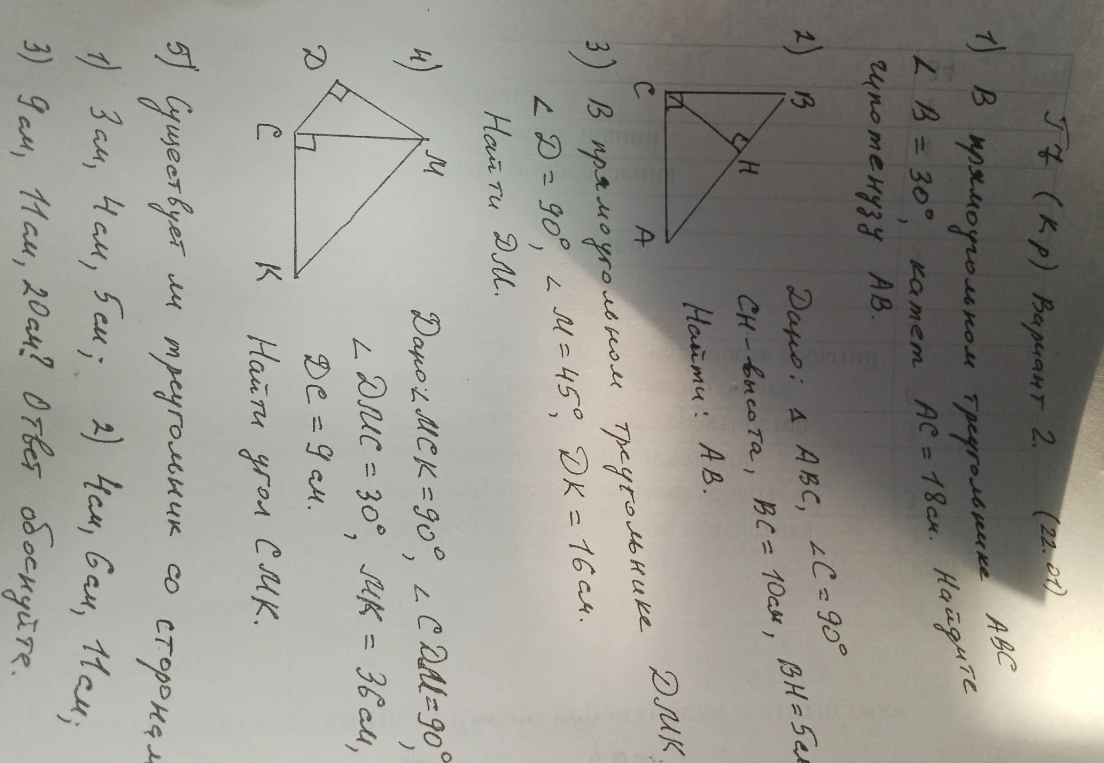 Г7 (Кр) Вариант 2. (22.01)
1) В прямоугольном треугольнике ABC
∠ B = 30°, катет AC = 18см. Найдите
гипотенузу AB.
2)
B
C
H
A
Дано: Δ ABC, ∠C = 90°
CH - высота, BC = 10см, BH = 5см
Найти: AB.
3) В прямоугольном треугольнике DMK
∠ D = 90°, ∠ M = 45°, DK = 16см.
Найти DM.
4)
D
M
C
K
Дано: ∠MCK = 90°, ∠CDM = 90°,
∠DMC = 30°, MK = 36см,
DC = 9см.
Найти угол CMK.
5) Существует ли треугольник со сторонам
1) 3см, 4см, 5см; 2) 4см, 6см, 11см;
3) 9см, 11см, 20см? Ответ обоснуйте.